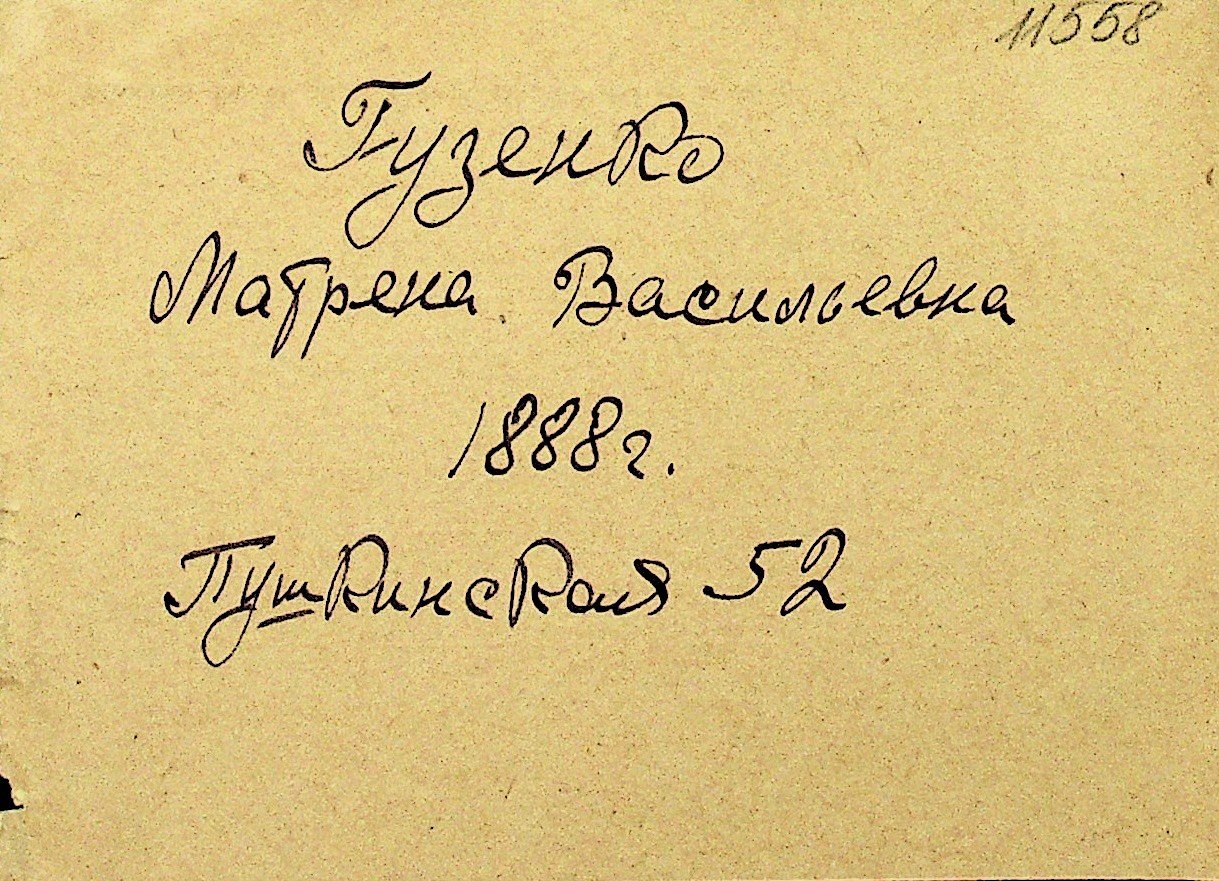 11558
Гузенко
Матрена Васильевна
1888г.
Пушкинская 52